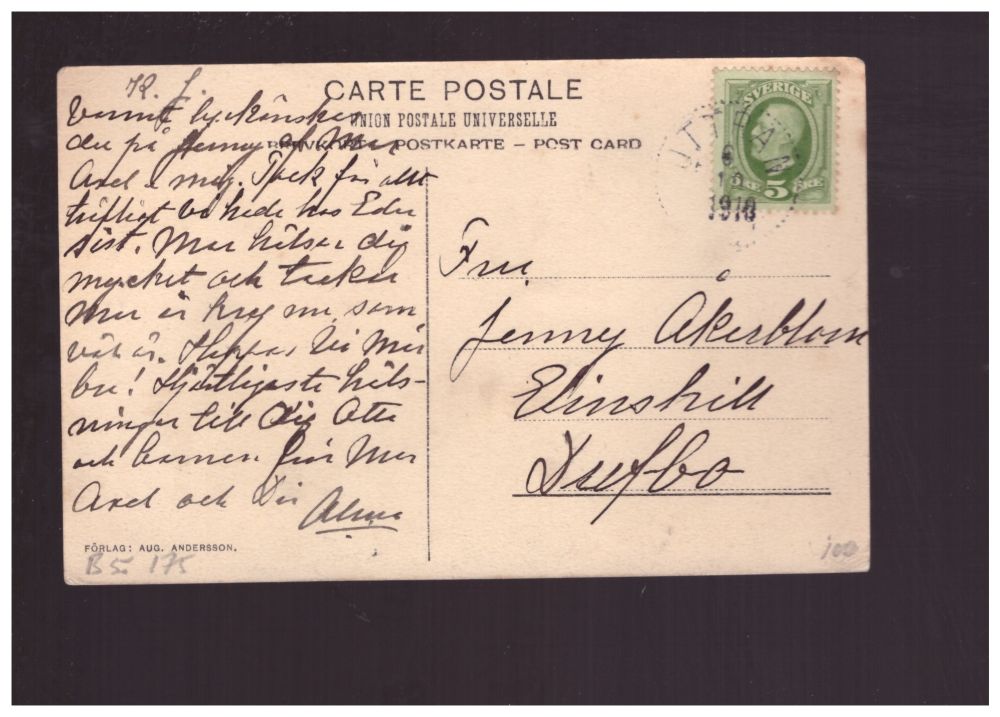 CARTE POSTALE
UNION POSTALE UNIVERSELLE
POSTKARTE – POST CARD
SVERIGE
5 ÖRE
1910
K. J.
Varmt lyckönskar
du på Jenny af Mor
Axel o mig. Tack för allt
trefligt vi hade hos Eder
sist. Mor hälsar dig
mycket och tackar
Mor är kry nu, som
väl är. Hoppas Ni mår
bra! Hjärtligaste häls-
ningar till Dig Otto
och barnen från Mor
Axel och Din
Alma
Fru
Jenny Åkerblom
Elinshill
Dufbo
FÖRLAG: AUG. ANDERSSON.
B 5 175
100